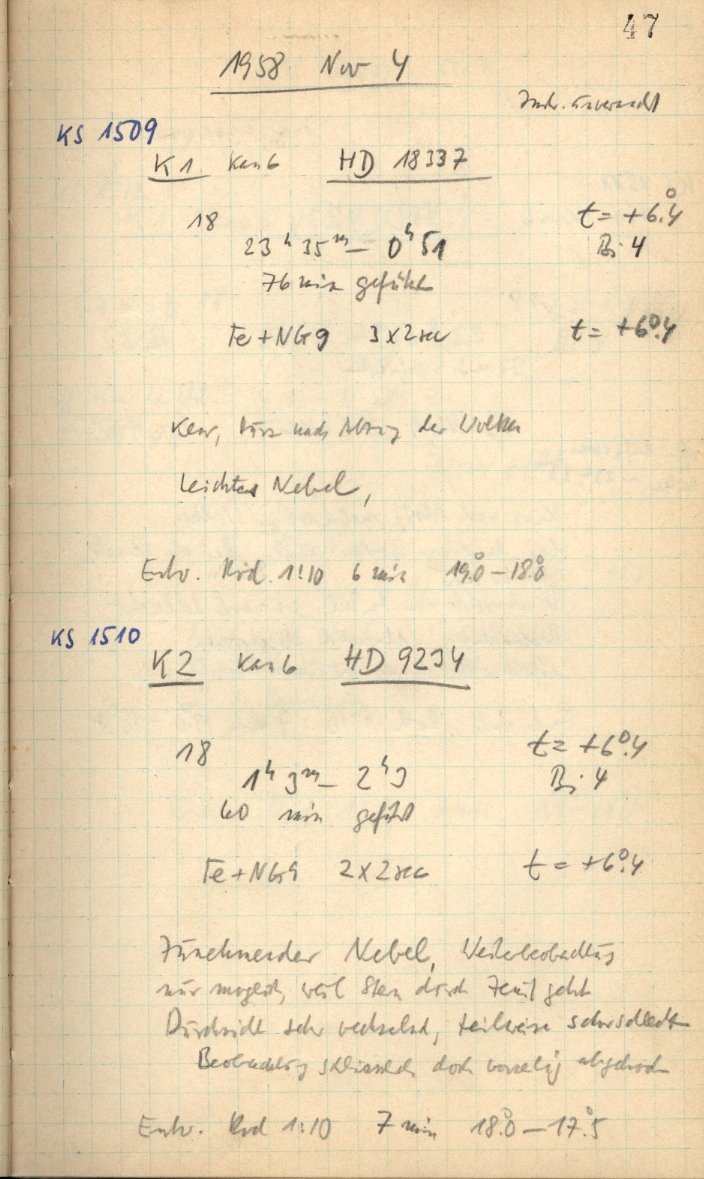 47
1958 Nov 4
Instr. unverändert
KS 1509
K1 Kas 6 HD 18337
18 t = +6°.4
23ʰ 35ᵐ – 0ʰ 51 Bi 4
76 min geführt
Fe + NG9 3 x 2 sec t = +6°.4
Klar, kurz nach Abzug der Wolken
Leichter Nebel,
Entw. Rod. 1:10 6 min 19°.0 – 18°.8
KS 1510
K2 Kas 6 HD 9234
18 t = +6°.4
1ʰ 3ᵐ – 2ʰ 3 Bi 4
60 min geführt
Fe + NG9 2 x 2 sec t = +6°.4
Zunehmender Nebel, Weiterbeobachtung
nur möglich, weil Stern durch Zenit geht
Durchsicht sehr wechselnd, teilweise sehr schlecht
Beobachtung schliesslich doch vorzeitig abgebrochen
Entw. Rod 1:10 7 min 18°.0 – 17°.5